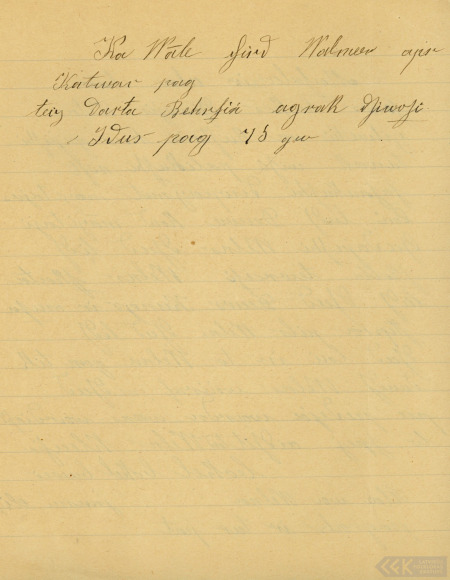 Ka Wāle ſird Walmeer apr
Katwar pag
teiz Darta Behrſiń agrak dſiwoſi
Idus pag 75 gw